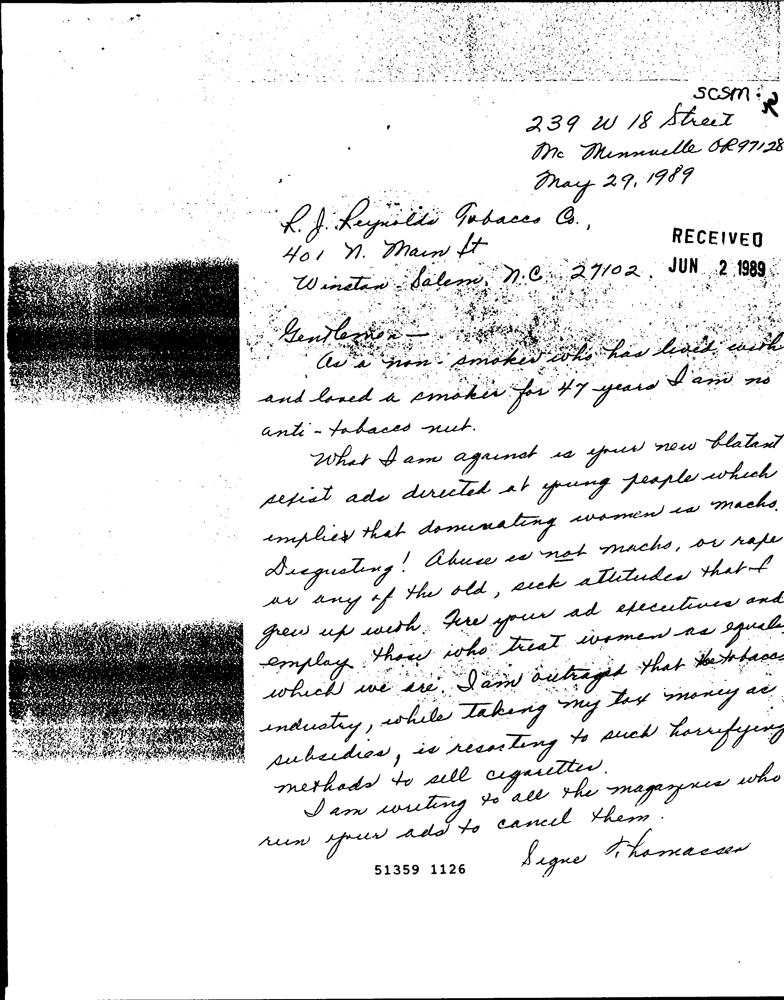 SCSM: R
239 W 18 Street
Mc Minnville OR 97128
May 29, 1989
R. J. Reynolds Tobacco Co.,
401 N. Main St
Winston-Salem, N.C. 27102.
RECEIVED
JUN 2 1989
Gentlemen—
As a non-smoker who has lived with
and loved a smoker for 47 years I am no
anti-tobacco nut.
What I am against is your new blatant
sexist ads directed at young people which
implies that dominating women is macho.
Disgusting! Abuse is not macho, or rape
or any of the old, sick attitudes that I
grew up with. Fire your ad executives and
employ those who treat women as equals
which we are. I am outraged that the tobacco
industry, while taking my tax money as
subsidies, is resorting to such horrifying
methods to sell cigarettes.
I am writing to all the magazines who
run your ads to cancel them.
Signe Thomassen
51359 1126